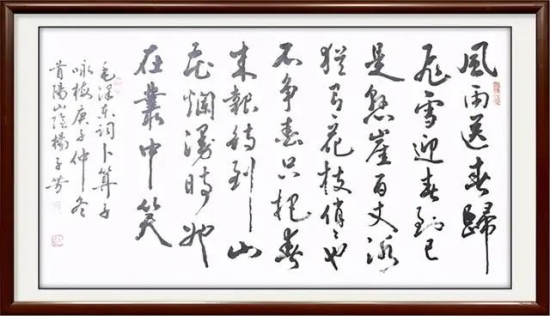 風雨送春歸
飛雪迎春到已
是懸崖百丈冰
猶有花枝俏〻也
不争春只把春
來報待到山
花爛漫時她
在叢中笑
毛澤东詞卜算子
咏梅庚子仲冬
首陽山陰楊子芳